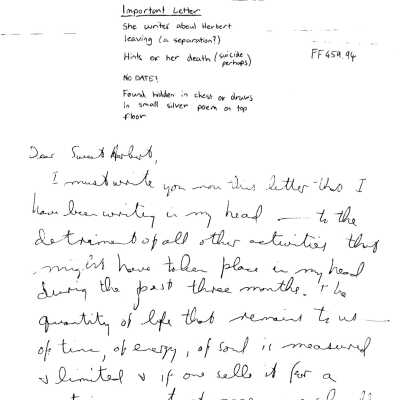 Important Letter
She writes about Herbert
leaving (a separation?)
Hints or her death (suicide perhaps)
FF459.94
NO DATE?
Found hidden in chest or draws
in small silver poem on top
floor
Dear Sweet Herbert,
I must write you now this letter that I
have been writing in my head — to the
detriment of all other activities that
might have taken place in my head
during the past three months. The
quantity of life that remains to us —
of time, of energy, of soul is measured
& limited & if one sells it for a